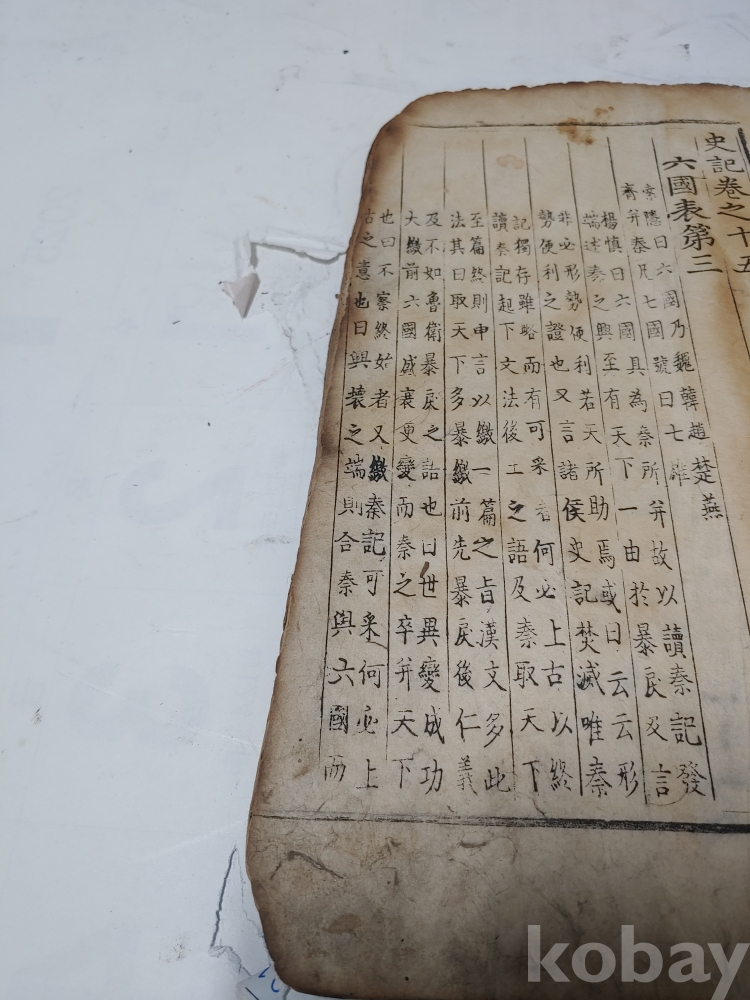 史記卷之十五
六國表第三
索隱曰六國乃魏韓趙楚燕
齊并秦凡七國號曰七雄
楊慎曰六國具為秦所并故以讀秦記發
端述秦之興至有天下一由於暴戾及言
非必形勢便利若天所助焉或曰云云形
勢便利之證也又言諸侯史記焚滅唯秦
記獨存雖略而有可采者何必上古以終
讀秦記起下文法後王之語及秦取天下
至篇終則申言以繳一篇之旨漢文多此
法其曰取天下多暴繳前先暴戾後仁義
及不如魯衛暴戾之語也曰世異變成功
大繳前六國盛衰更變而秦之卒并天下
也曰不察終始者又繳秦記可采何必上
古之意也曰興壞之端則合秦與六國而
kobay